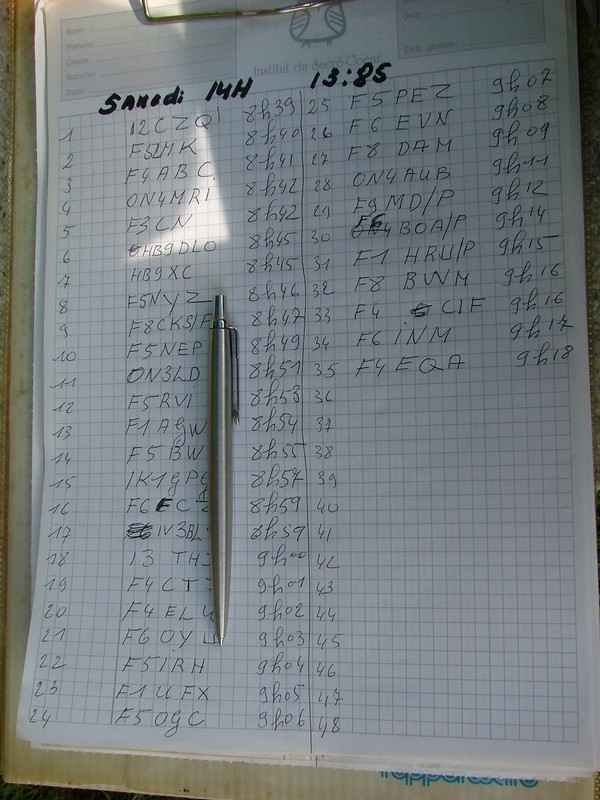 Samedi 14H 13:85
1 I2CZQ 8h39
2 F5LMK 8h40
3 F4ABC 8h41
4 ON4MRI 8h42
5 F3CN 8h42
6 HB9DLO 8h45
7 HB9XC 8h45
8 F5NYZ 8h46
9 F8CKS/P 8h47
10 F5NEP 8h49
11 ON3LD 8h51
12 F5RVI 8h53
13 F1AGW 8h54
14 F5BW 8h55
15 IK1GPG 8h57
16 F6FCZ 8h59
17 IV3BL 8h59
18 I3 TH 9h00
19 F4CT 9h01
20 F4EL 9h02
21 F6OYU 9h03
22 F5IRH 9h04
23 F1UFX 9h05
24 F5OGC 9h06
25 F5PEZ 9h07
26 F6EVN 9h08
27 F8DAM 9h09
28 ON4AUB 9h11
29 F9MD/P 9h12
30 F6BOA/P 9h14
31 F1HRU/P 9h15
32 F8BWM 9h16
33 F4CIF 9h16
34 F6INM 9h17
35 F4EQA 9h18
36
37
38
39
40
41
42
43
44
45
46
47
48